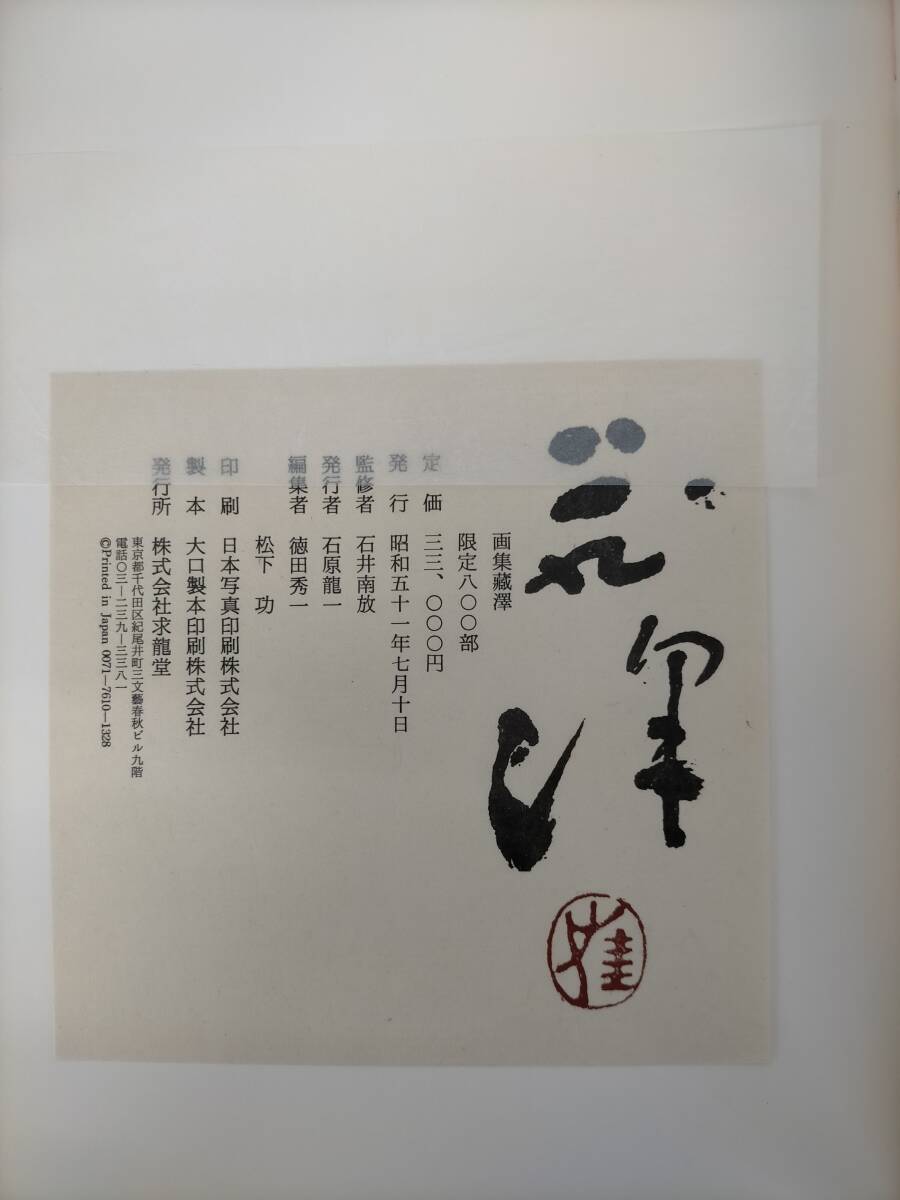 画集藏澤
限定八〇〇部
定価 三三、〇〇〇円
発行 昭和五十一年七月十日
監修者 石井南放
発行者 石原龍一
編集者 徳田秀一
松下 功
印刷 日本写真印刷株式会社
製本 大口製本印刷株式会社
発行所 株式会社求龍堂
東京都千代田区紀尾井町三文藝春秋ビル九階
電話〇三―二三九―三三八一
©Printed in Japan 0071―7610―1328